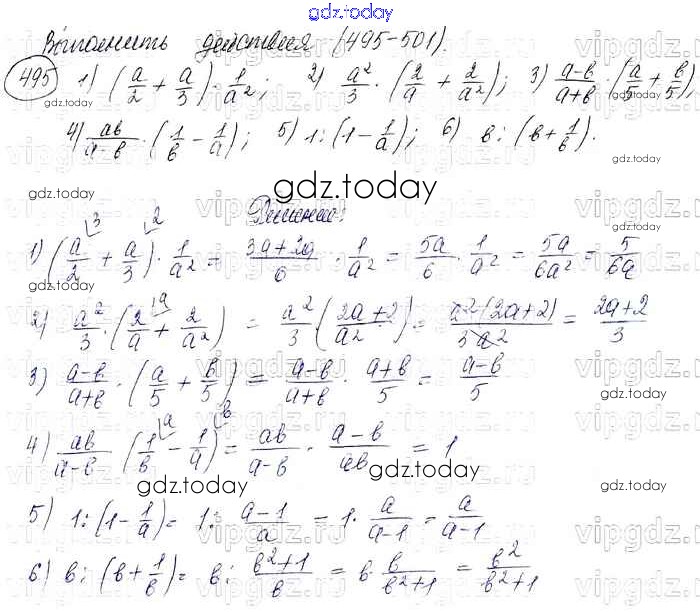 gdz.today
Выполнить действия (495-501).
495 1) (a/2 + a/3) · 1/a²; 2) a²/3 · (2/a + 2/a²); 3) (a-b)/(a+b) · (a/5 + b/5);
gdz.today
4) ab/(a-b) · (1/b - 1/a); 5) 1 : (1 - 1/a); 6) b : (b + 1/b).
gdz.today
Решение:
1) (a/2 + a/3) · 1/a² = (3a+2a)/6 · 1/a² = 5a/6 · 1/a² = 5a/6a² = 5/6a
2) a²/3 · (2/a + 2/a²) = a²/3 · ((2a+2)/a²) = a²(2a+2)/3a² = (2a+2)/3
3) (a-b)/(a+b) · (a/5 + b/5) = (a-b)/(a+b) · (a+b)/5 = (a-b)/5
4) ab/(a-b) · (1/b - 1/a) = ab/(a-b) · (a-b)/ab = 1
gdz.today
5) 1 : (1 - 1/a) = 1 : (a-1)/a = 1 · a/(a-1) = a/(a-1)
6) b : (b + 1/b) = b : (b²+1)/b = b · b/(b²+1) = b²/(b²+1)